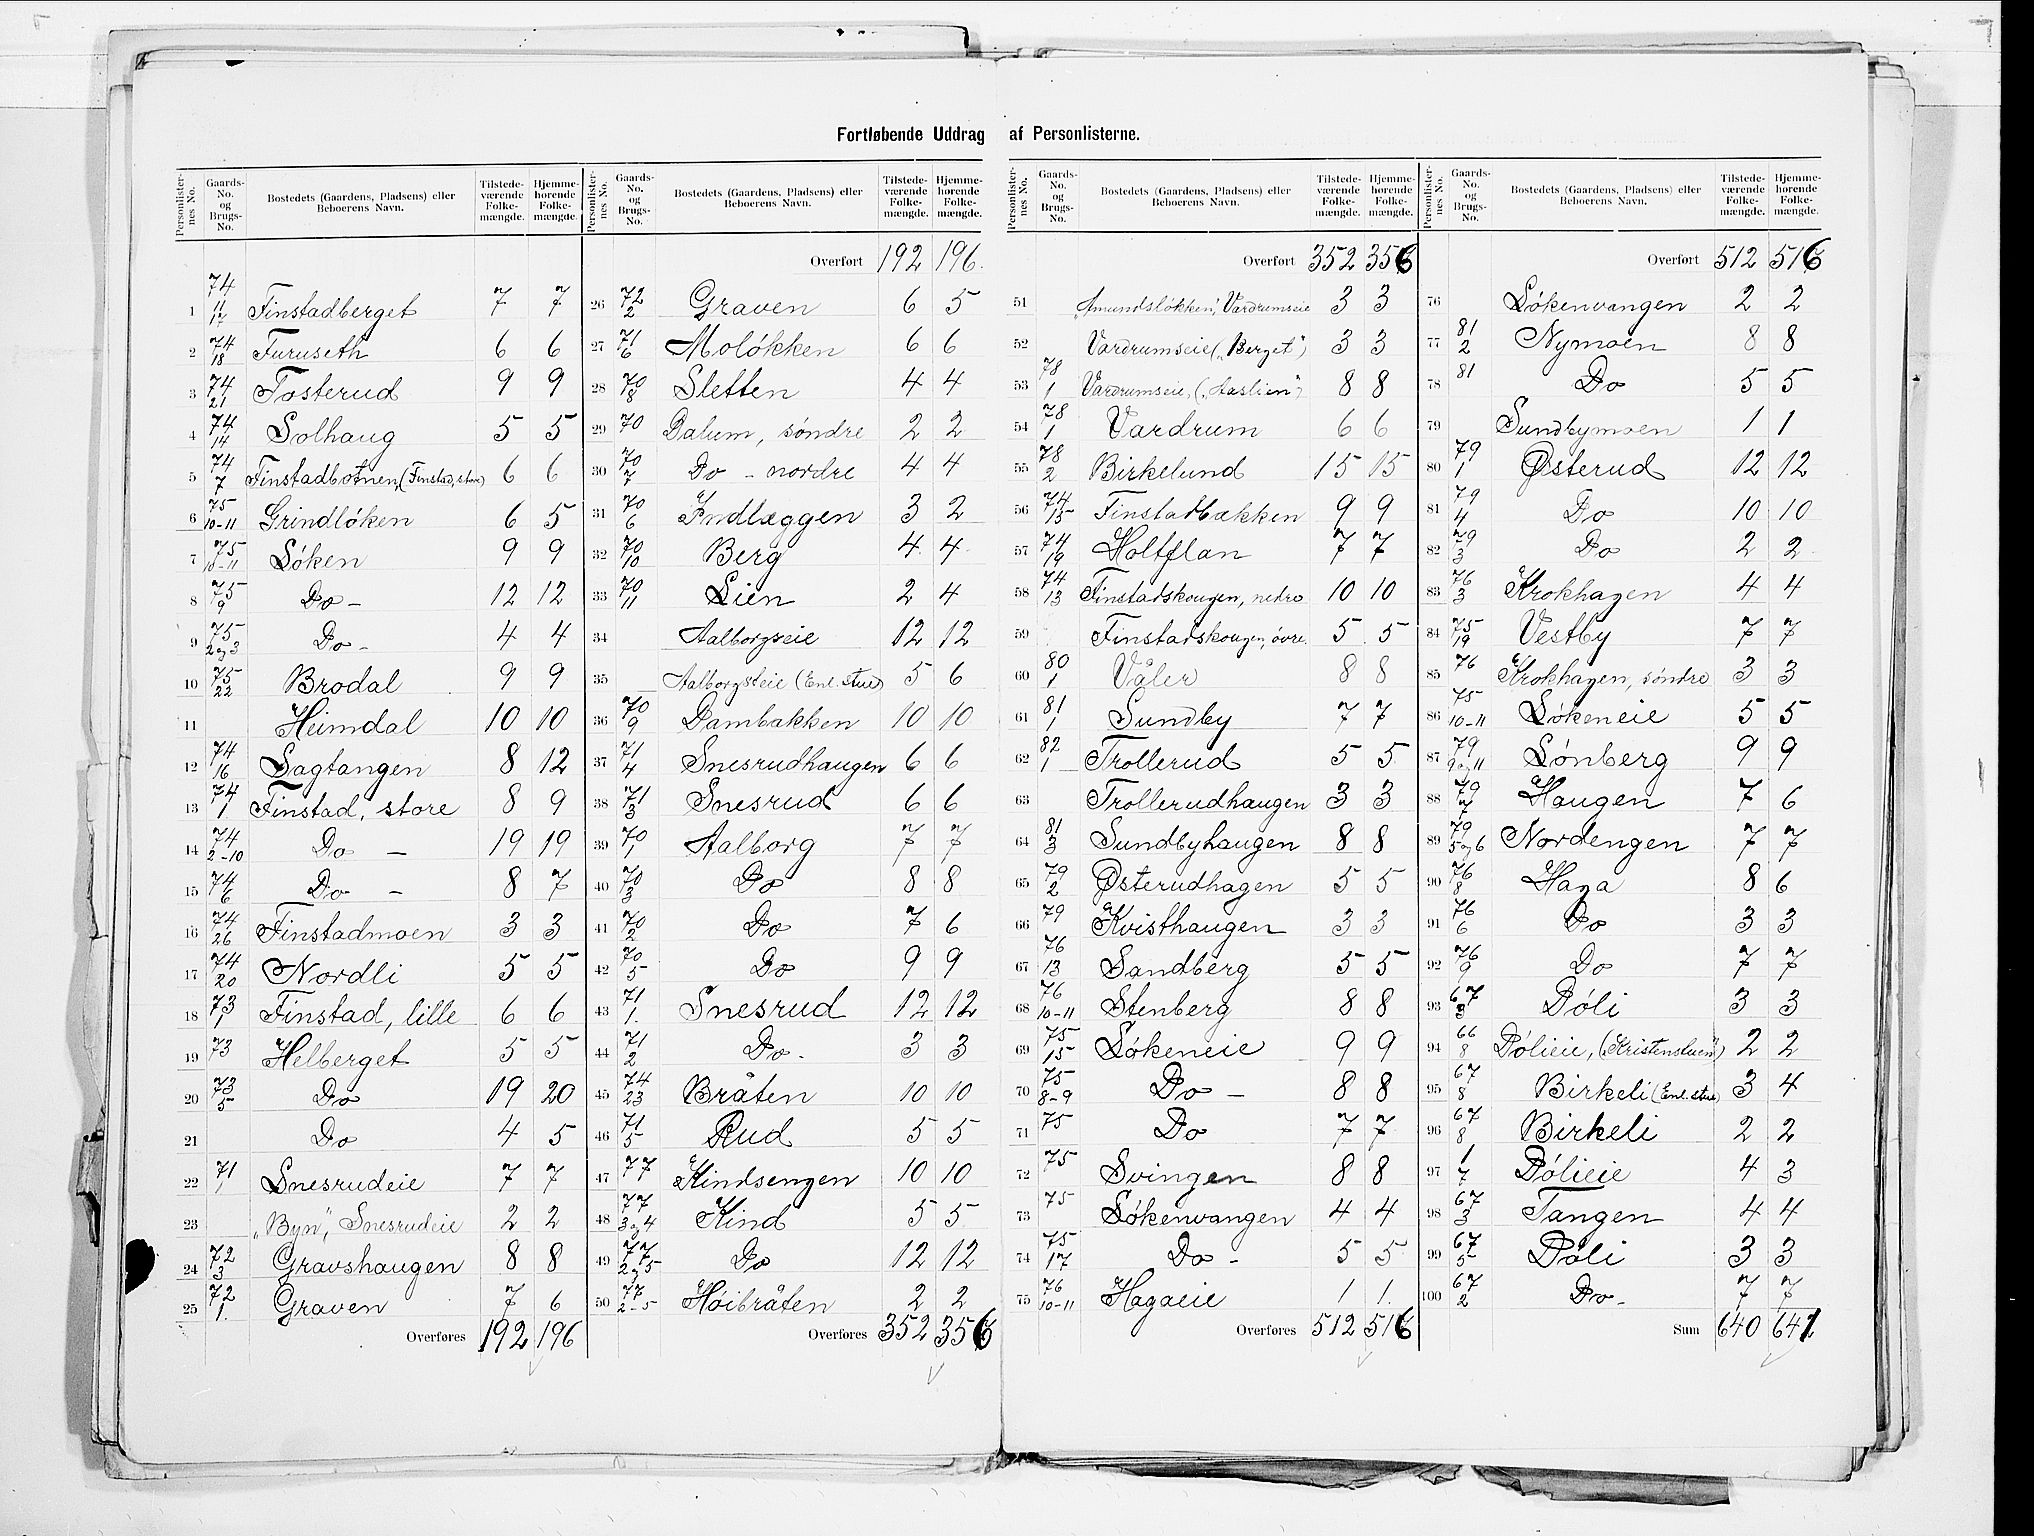 Fortløbende Uddrag af Personlisterne.
Personlister-nes No. Gaards-No. og Brugs-No. Bostedets (Gaardens, Pladsens) eller Beboerens Navn. Tilstede-værende Folke-mængde. Hjemme-hørende Folke-mængde.
1 74 11 17 Finstadberget 7 7
2 74 18 Furuseth 6 6
3 74 21 Tosterud 9 9
4 74 14 Solhaug 5 5
5 74 7 Finstadbotnen, (Finstad, store) 6 6
6 75 10-11 Grindløken 6 5
7 75 10-11 Løken 9 9
8 75 9 Do - 12 12
9 75 2 og 3 Do - 4 4
10 75 22 Brodal 9 9
11 Heimdal 10 10
12 74 16 Sagtangen 8 12
13 74 1. Finstad, store 8 9
14 74 2-10 Do — 19 19
15 74 6 Do - 8 7
16 74 26 Finstadmoen 3 3
17 74 20 Nordli 5 5
18 73 1 Finstad, lille 6 6
19 73 Helberget 5 5
20 73 5 Do 19 20
21 Do 4 5
22 71 1 Snesrudeie 7 7
23 „Byn", Snesrudeie 2 2
24 72 3 Gravshaugen 8 8
25 72 1. Graven 7 6
Overføres 192 196
Personlister-nes No. Gaards-No. og Brugs-No. Bostedets (Gaardens, Pladsens) eller Beboerens Navn. Tilstede-værende Folke-mængde. Hjemme-hørende Folke-mængde.
Overført 192 196.
26 72 2 Graven 6 5
27 71 6 Moløkken 6 6
28 70 8 Sletten 4 4
29 70 Dalum, søndre 2 2
30 70 7 Do - nordre 4 4
31 70 6 Indlæggen 3 2
32 70 10 Berg 4 4
33 70 11 Lien 2 4
34 Aalborgseie 12 12
35 Aalborgseie (Enl. stue) 5 6
36 70 9 Dambakken 10 10
37 71 4 Snesrudhaugen 6 6
38 71 3 Snesrud 6 6
39 70 1 Aalborg 7 7
40 70 3 Do 8 8
41 70 2 Do 7 6
42 70 5 Do 9 9
43 71 1. Snesrud 12 12
44 71 2 Do - 3 3
45 74 23 Bråten 10 10
46 71 5 Rud 5 5
47 77 Kindsengen 10 10
48 77 3 og 4 Kind 5 5
49 77 2 og 5 Do 12 12
50 77 2-5 Høibråten 2 2
Overføres 352 356
Personlister-nes No. Gaards-No. og Brugs-No. Bostedets (Gaardens, Pladsens) eller Beboerens Navn. Tilstede-værende Folke-mængde. Hjemme-hørende Folke-mængde.
Overført 352 356
51 „Amundsløkken", Vardrumseie 3 3
52 Vardrumseie („Berget") 3 3
53 78 1 Vardrumseie, („Haslien") 8 8
54 78 1 Vardrum 6 6
55 78 2 Birkelund 15 15
56 74 15 Finstadbækken 9 9
57 74 19 Holtflan 7 7
58 74 13 Finstadskougen, nedre 10 10
59 Finstadskougen, øvre. 5 5
60 80 1 Våler 8 8
61 81 1 Sundby 7 7
62 82 1 Trollerud 5 5
63 Trollerudhaugen 3 3
64 81 3 Sundbyhaugen 8 8
65 79 2 Østerudhagen 5 5
66 79 Kvisthaugen 3 3
67 76 13 Sandberg 5 5
68 76 10-11 Stenberg 8 8
69 75 15 Løkeneie 9 9
70 75 8-9 Do — 8 8
71 75 Do 7 7
72 75 Svingen 8 8
73 75 Løkenvangen 4 4
74 75 17 Do - 5 5
75 76 10-11 Hagaeie 1 1.
Overføres 512 516
Personlister-nes No. Gaards-No. og Brugs-No. Bostedets (Gaardens, Pladsens) eller Beboerens Navn. Tilstede-værende Folke-mængde. Hjemme-hørende Folke-mængde.
Overført 512 516
76 Løkenvangen 2 2
77 81 2 Nymoen 8 8
78 81 Do 5 5
79 Sundbymoen 1 1
80 79 1 Østerud 12 12
81 79 4 Do 10 10
82 79 3 Do 2 2
83 76 3 Krokhagen 4 4
84 75 19 Vestby 7 7
85 76 Krokhagen, søndre 3 3
86 75 10-11 Løkeneie 5 5
87 79 9 og 11 Lønberg 9 9
88 79 7 Haugen 7 6
89 79 5 og 6 Nordengen 7 7
90 76 8 Haga 8 6
91 76 6 Do 3 3
92 76 9 Do 7 7
93 67 3 Døli 3 3
94 66 8 Dølieie, („Kristenstuen") 2 2
95 67 8 Birkeli (Enl. stue) 3 4
96 67 8 Birkeli 2 2
97 1 7 Dølieie 4 3
98 67 3 Tangen 4 4
99 67 5 Døli 3 3
100 67 2 Do - 7 7
Sum 640 641